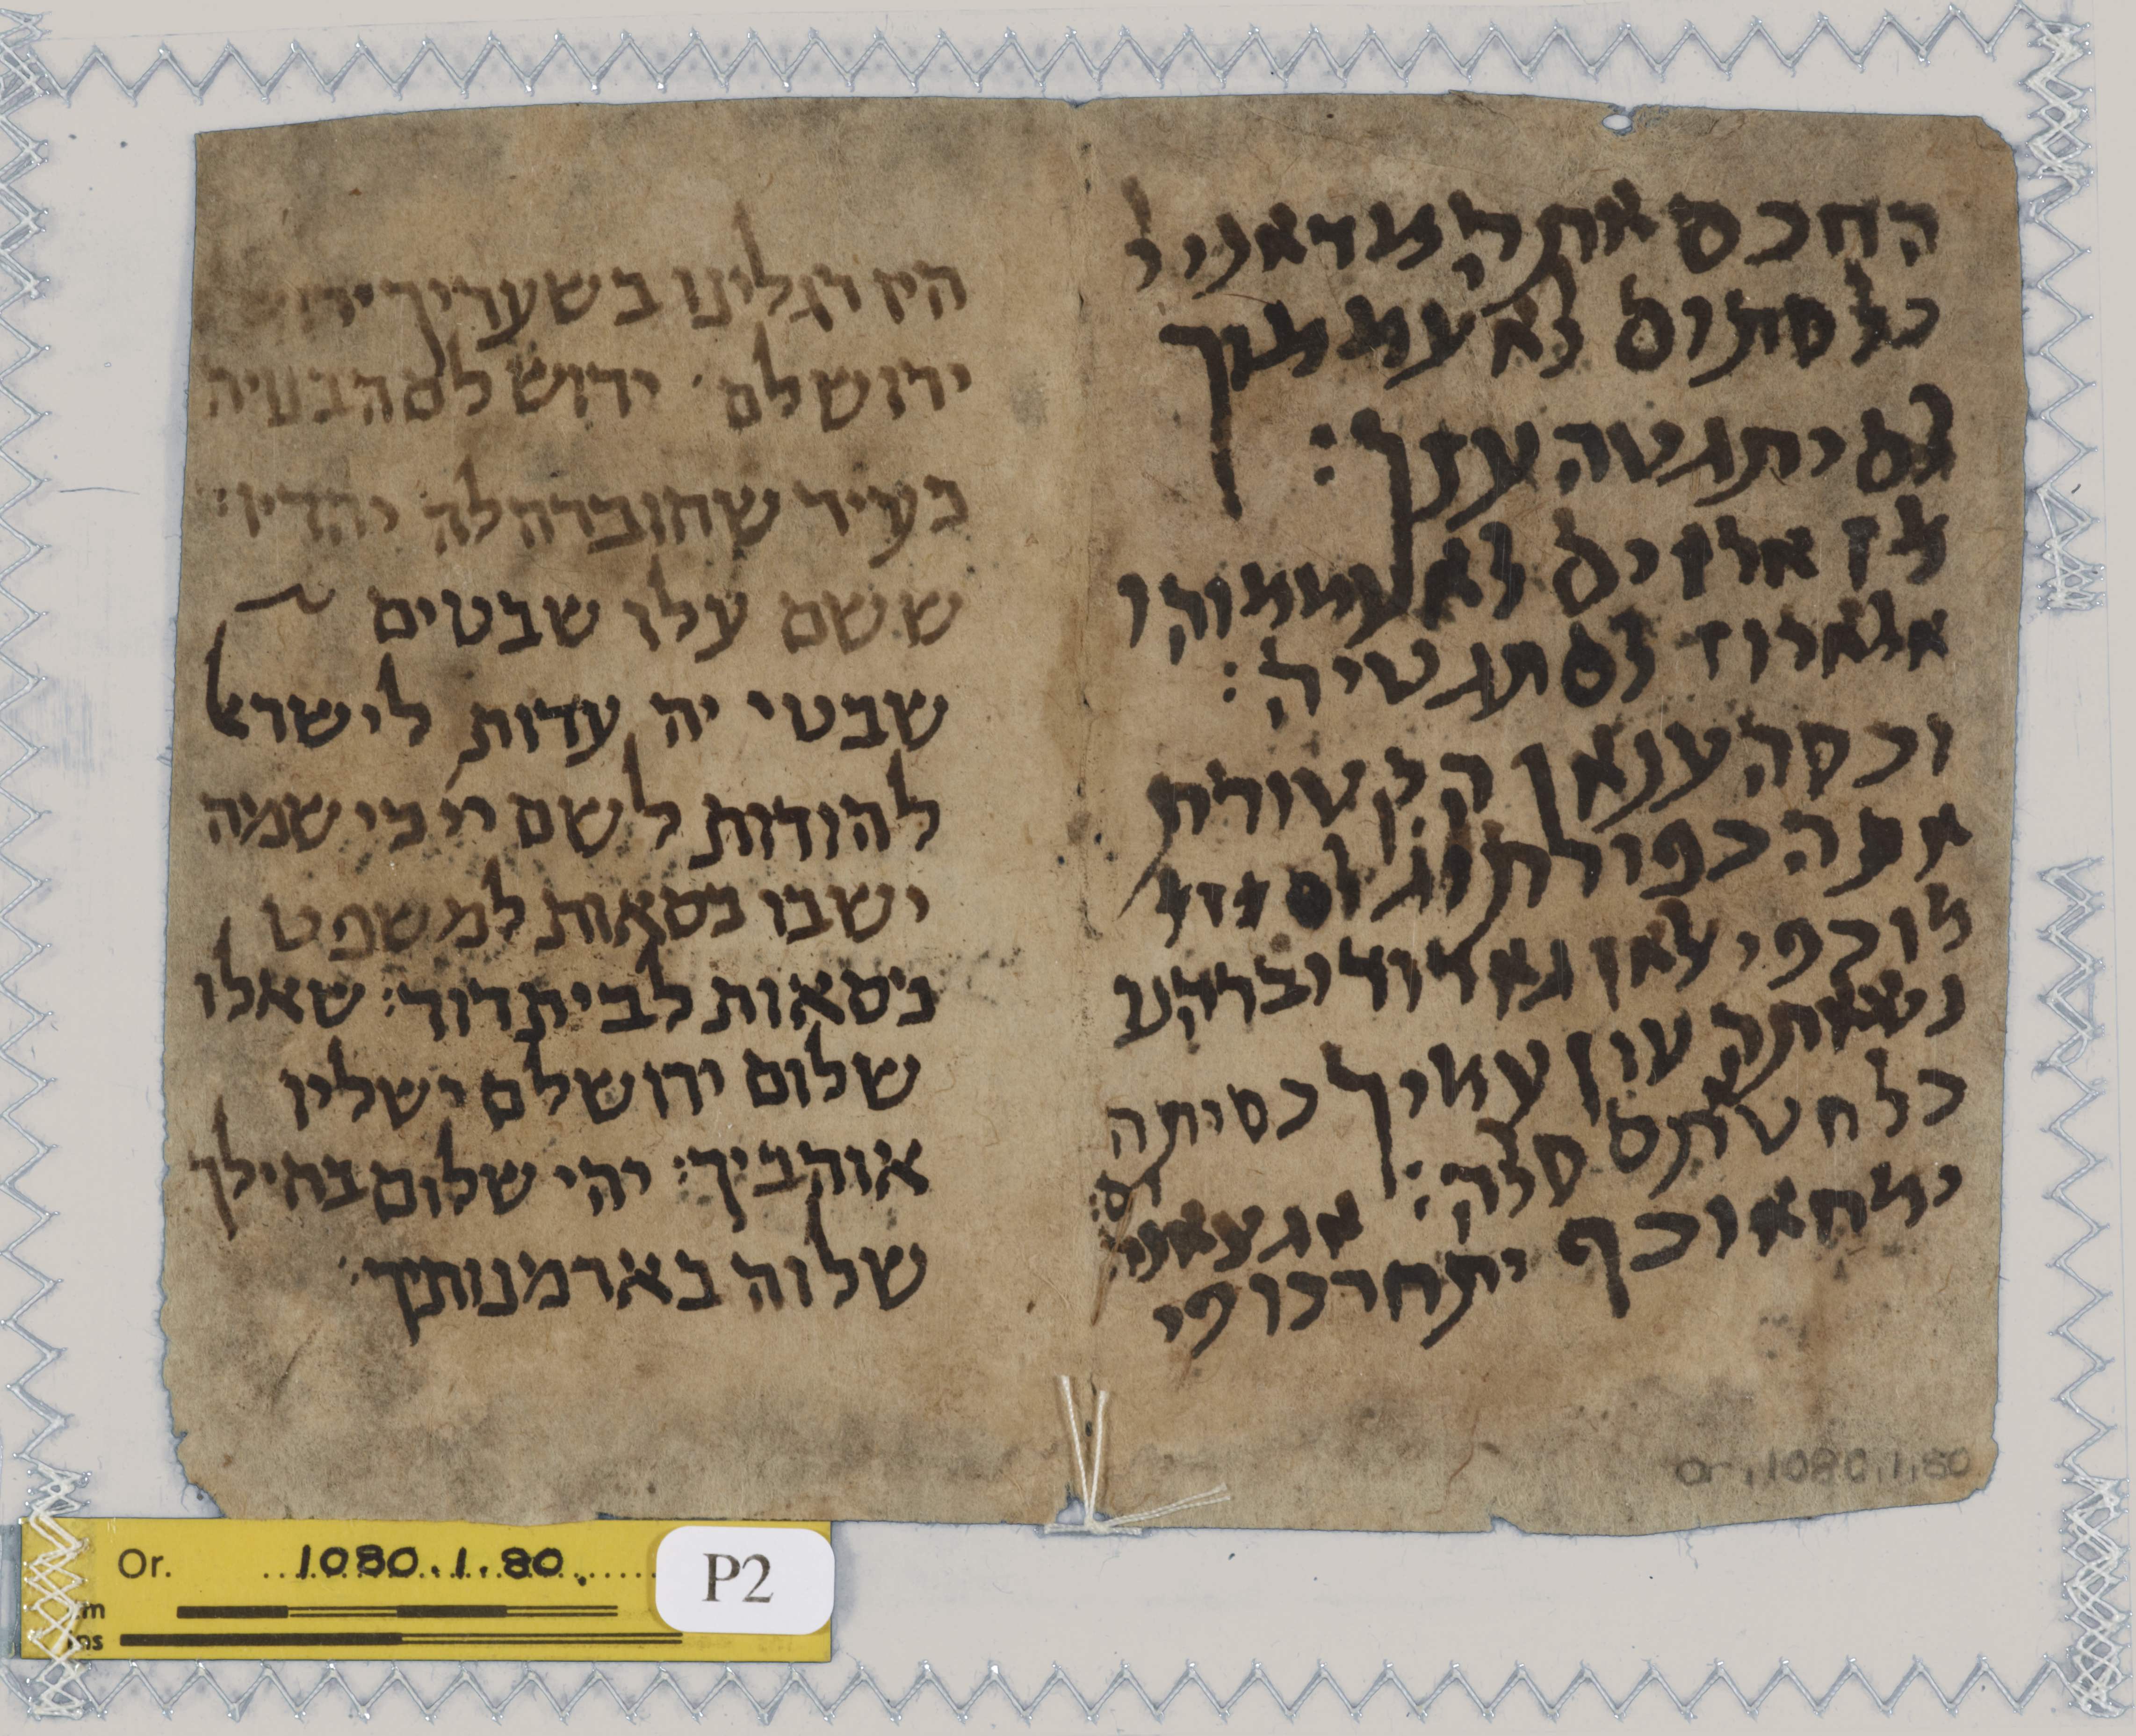 החכם אתה מדאניל
כל סתום לא עממוך
לם יתגטה ענך :
לז אלוים לא עממוהו
אלארוז לם תגטיה :
וכסה ענאן הקטורת
אתה כפולת
לוכפי
נשאתה עון עמיך כסיתה
כל חטאתם סלה :
ימחאו כף יתחרכו פי
היו רגלינו בשעריך
ירושלם ׳ ירושלם הבנויה
כעיר שחוברה לה יחדיו :
ששם עלו שבטים
שבטי יה עדות לישראל
להודות לשם ייי כי שמה
ישבו כסאות למשפט
כסאות לבית דוד : שאלו
שלום ירושלם ישליו
אוהביך : יהי שלום בחילך
שלוה בארמנותיך :
Or. 1080.1.80
Or. 1080.1.80.
P2
cm
ins